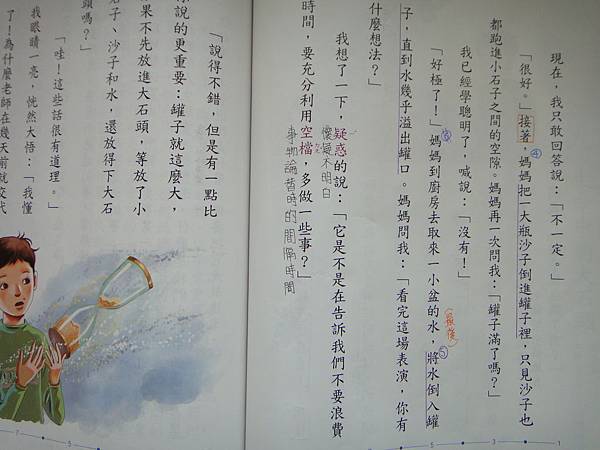 現在，我只敢回答說：「不一定。」
「很好。」接著，媽媽把一大瓶沙子倒進罐子裡，只見沙子也
④
都跑進小石子之間的空隙。媽媽再一次問我：「罐子滿了嗎？」
我已經學聰明了，喊說：「沒有！」
(最後)
「好極了！」媽媽到廚房去取來一小盆的水，將水倒入罐
⑤
子，直到水幾乎溢出罐口。媽媽問我：「看完這場表演，你有
什麼想法？」
我想了一下，疑惑的說：「它是不是在告訴我們不要浪費
懷疑不明白
時間，要充分利用空檔，多做一些事？」
事物論暫時的間隔時間
「說得不錯，但是有一點比
你說的更重要：罐子就這麼大，
如果不先放進大石頭，等放了小
石子、沙子和水，還放得下大石
頭嗎？」
「哇！這些話很有道理。」
我眼睛一亮，恍然大悟：「我懂
了！為什麼老師在幾天前就交代